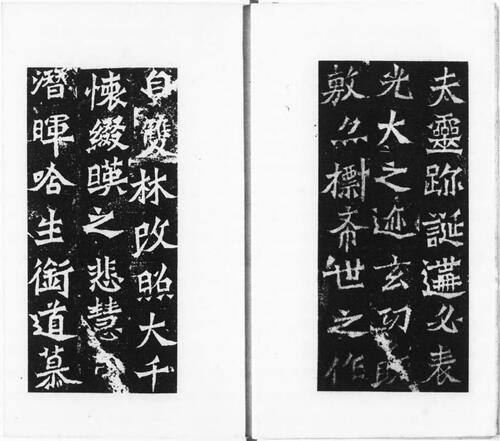 夫靈跡誕遘必表
光大之迹玄功既
敷亦摽希世之作
自雙林改照大千
懷綴暎之悲慧日
潛暉哈生銜道慕